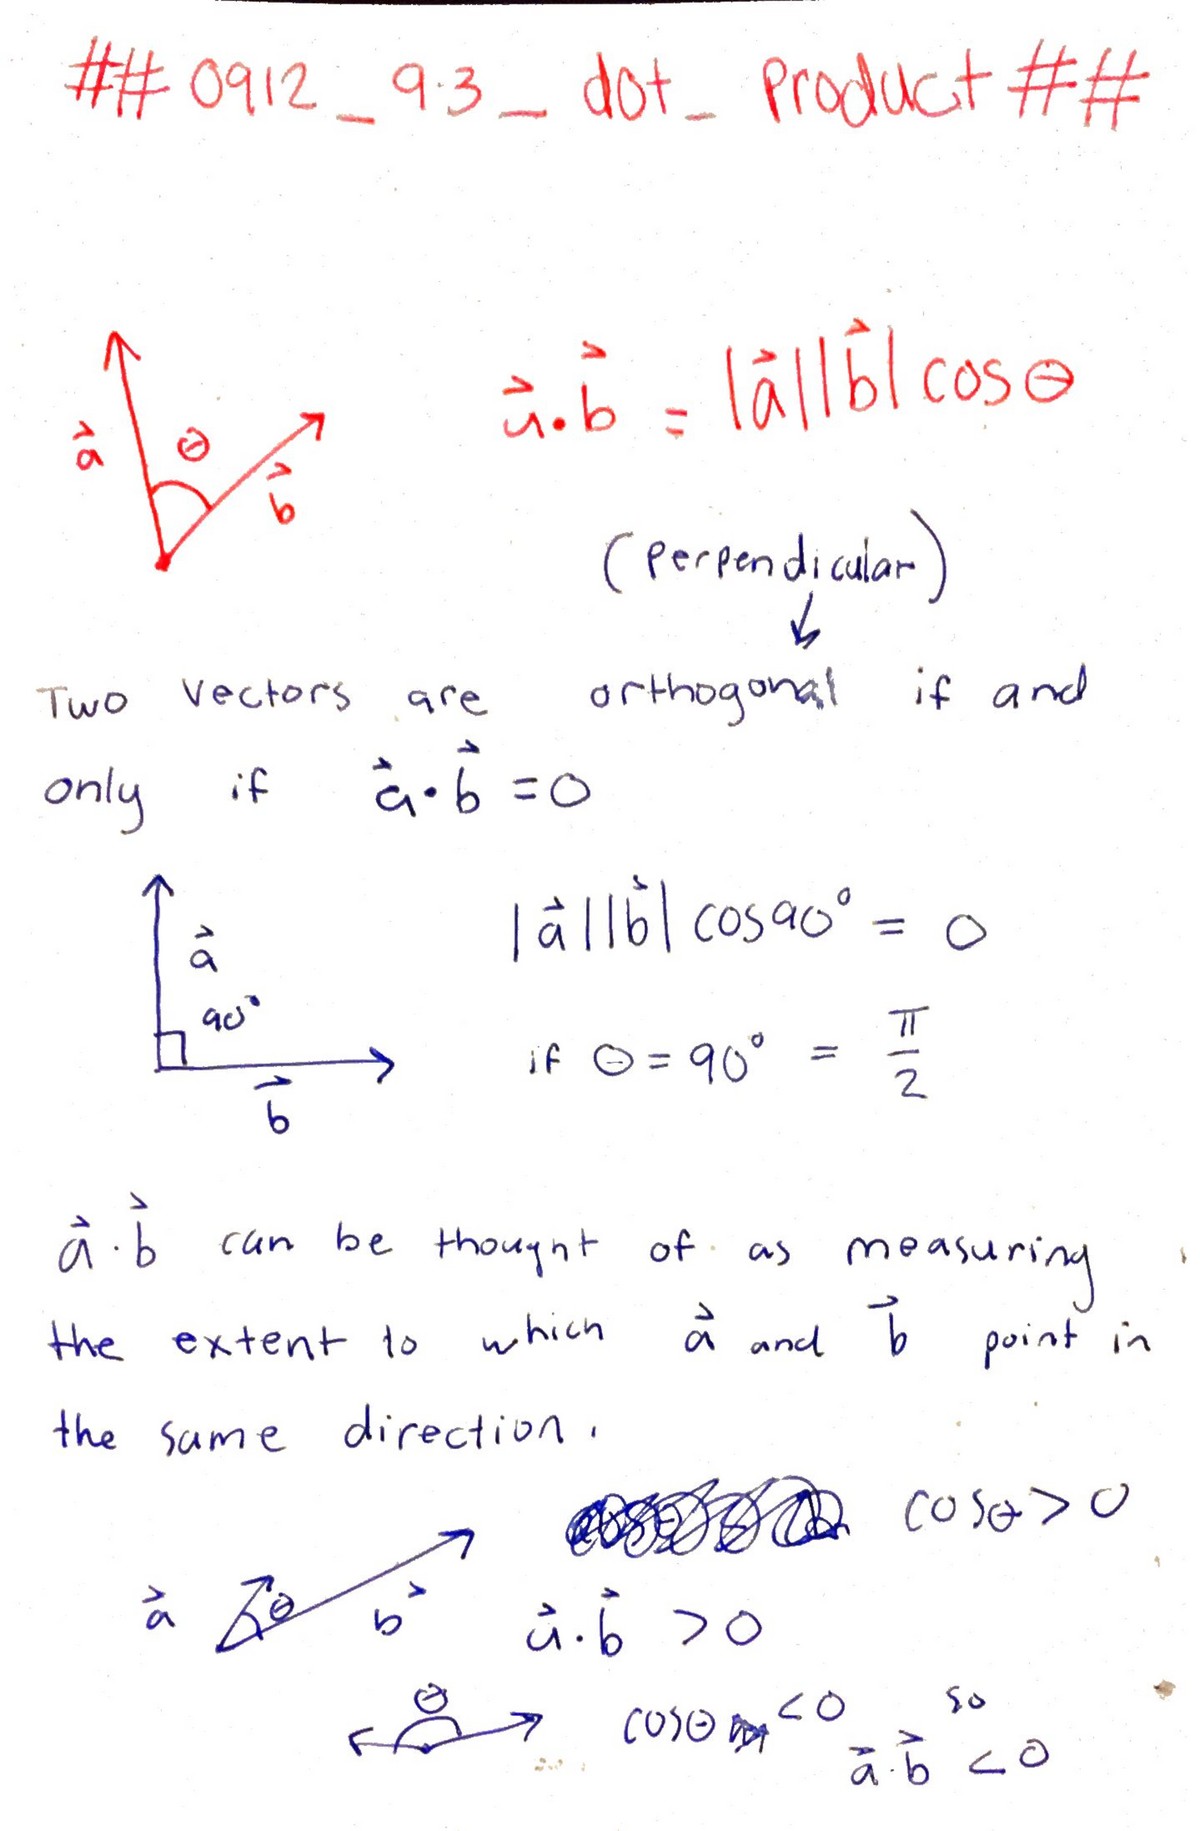 ## 0912_9.3_dot_product ##
a⃗ θ b⃗
a⃗·b⃗ = |a⃗||b⃗| cosθ
(perpendicular)
↓
Two vectors are orthogonal if and
only if a⃗·b⃗ = 0
a⃗
90°
b⃗
|a⃗||b⃗| cos90° = 0
if θ = 90° = π/2
a⃗·b⃗ can be thought of as measuring
the extent to which a⃗ and b⃗ point in
the same direction.
cosθ > 0
a⃗ θ b⃗ a⃗·b⃗ > 0
θ cosθ < 0 so
a⃗·b⃗ < 0